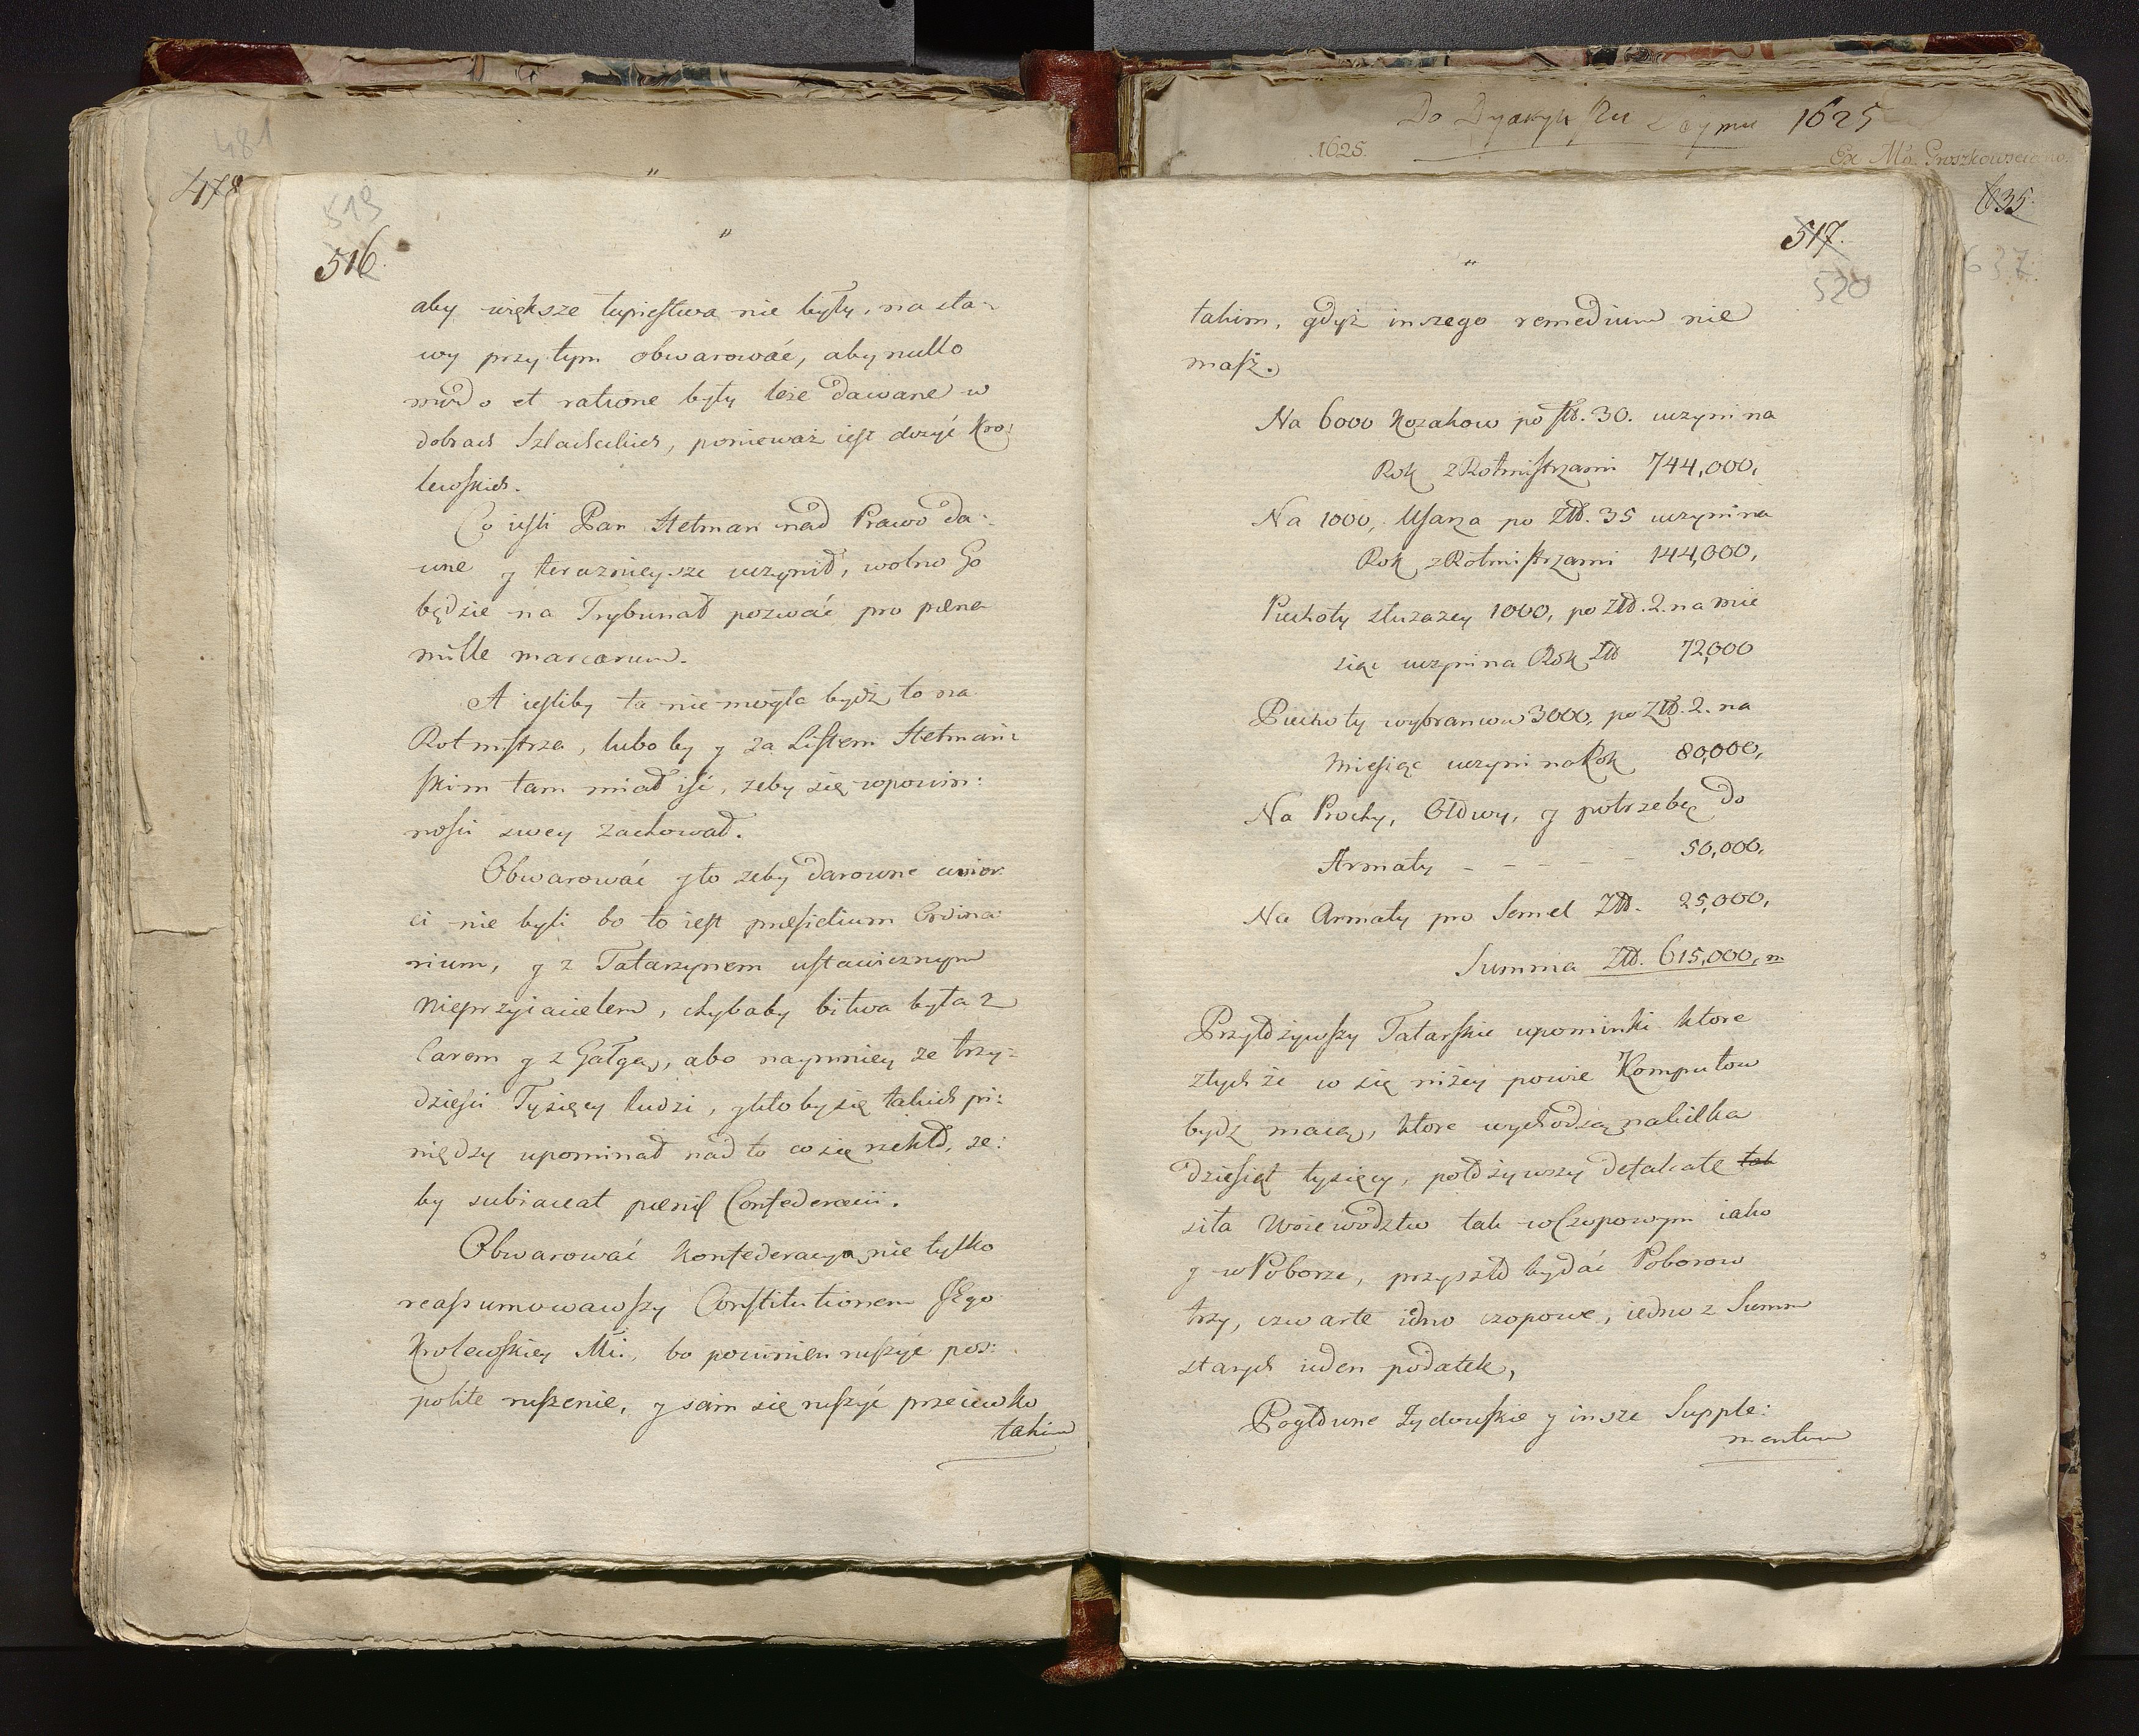 481
478
519
516.
"
aby większe łupiestwa nie były, na sta-
wy przytym obwarować, aby nullo
modo et ratione były leże dawane w
dobrach Szlacheckich, ponieważ iest dosyć Kro:
lewskich.
Co iesli Pan Hetman nad Prawo da:
wne y teraznieysze uczynił, wolno Go
będzie na Trybunał pozwać pro pæna
mille marcarum.
A iesliby ta nie mogła bydź, to na
Rotmistrza, luboby y za Listem Hetmań:
skim tam miał iść, żeby się w powin:
nosci swey zachował.
Obwarować y to żeby darowne cwier:
ci nie byli bo to iest præsidium Ordina
rium, y z Tatarzynem ustawicznym
Nieprzyiacielem, chybaby bitwa była z
Carem y z Gałgą, abo naymniey ze trzy:
dziesci Tysięcy ludzi, y ktoby się takich pi:
niędzy upominał nad to co się rzekło, że:
by subiaceat pænis Confederacii.
Obwarować Konfederacyą nie tylko
reassumowawszy Constitutionem JEgo
Krolewskiey Mći, bo powinien ruszyć pos:
polite ruszenie, y sam się ruszyć przeciwko
takim
Do Dyaryuszu Seymu 1625
1625.
Ex Mo. Proszkowsciano.
635.
637.
517.
520
"
takim, gdyż inszego remedium nie
masz.
Na 6000 Kozakow po Zło. 30. uczyni na
Rok z Rotmistrzami 744,000,
Na 1000, Usarza po Zło. 35 uczyni na
Rok z Rotmistrzami 144,000,
Piechoty służazey 1000, po Zło. 2. na Mie
siąc uczyni na Rok Zło 72,000
Piechoty wybranców 3000, po Zło. 2. na
Miesiąc uczyni na Rok 80,000,
Na Prochy, Ołowy, y potrzebę do
Armaty - - - - - 50,000,
Na Armaty pro Semel Zło. 25,000,
Summa Zło. 615,000, m
Przyłożywszy Tatarskie upominki ktore
z tychże co się niżey powie Komputow
bydz maią, ktore wychodzą na kilka
dziesiąt tysięcy, położywszy defalcate tak
siła Woiewodztw tak w Czopowym iako
y w Poborze, przyszło by dać Poborow
trzy, czwarte iedno czopowe, iedno z Summ
starych ieden podatek,
Pogłowne Żydowskie y insze Supple:
mentum